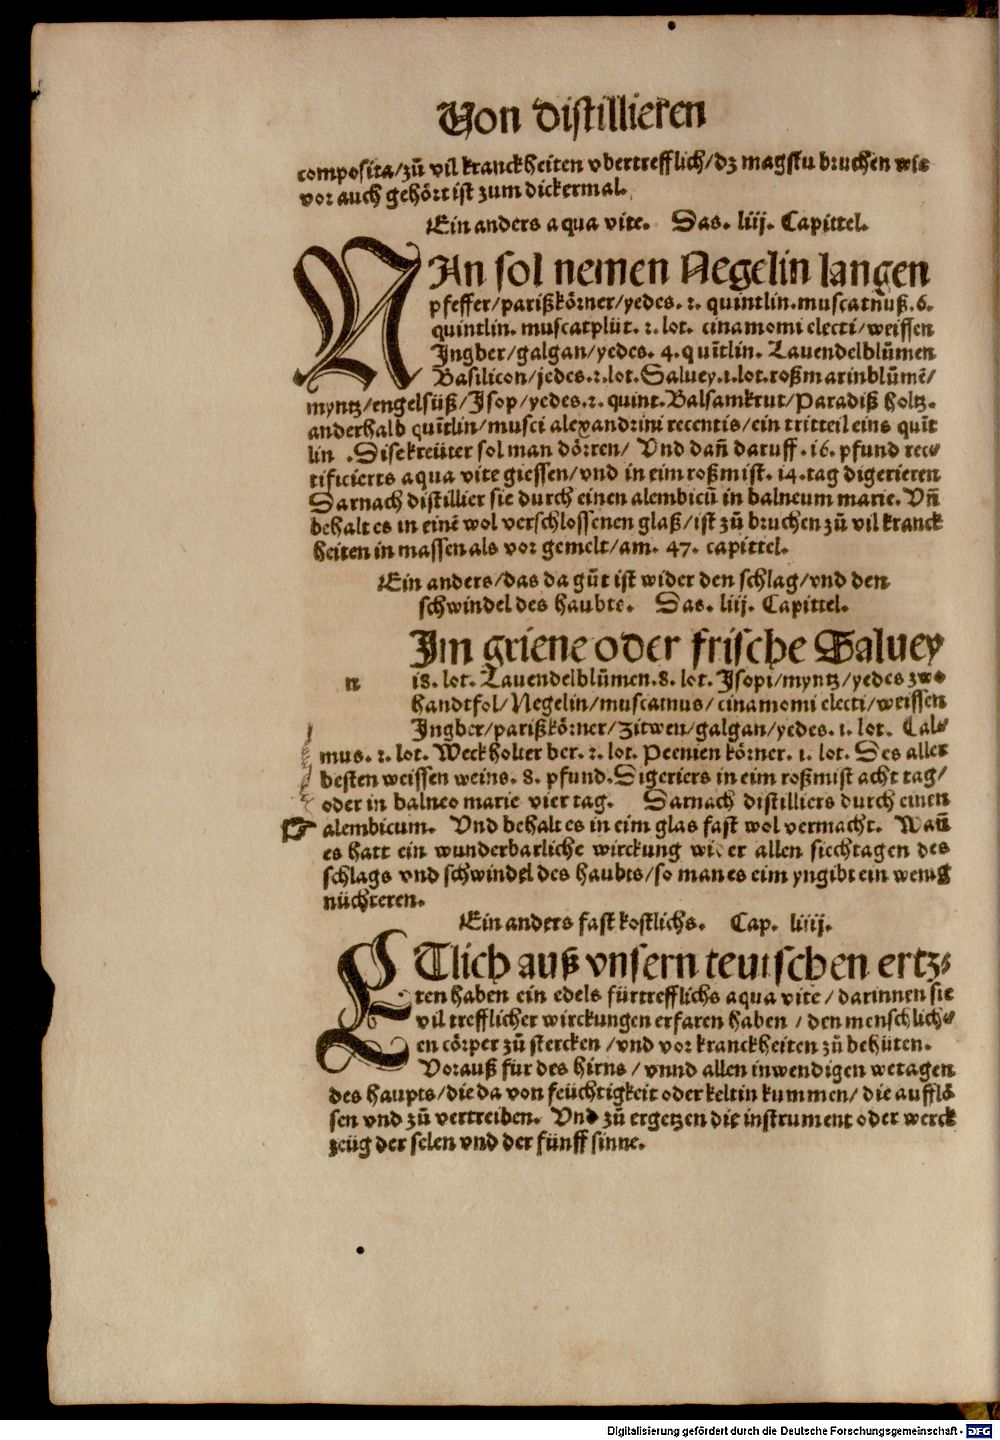 Von distillieren
composita/zů vil kranckheiten vbertrefflich/dz magstu bruchen wie
vor auch gehört ist zum dickermal.
Ein anders aqua vite. Das. liij. Capittel.
MAn sol nemen Negelin langen
pfeffer/parißkörner/yedes. 2. quintlin. muscatnuß. 6.
quintlin. muscatplüt. 2. lot. cinamomi electi/weissen
Jngber/galgan/yedes. 4. quītlin. Lauendelblůmen
Basilicon/jedes. 2. lot. Saluey. 1. lot. roßmarinblůmē/
myntz/engelsüß/Jsop/yedes. 2. quint. Balsamkrut/Paradiß holtz.
anderhalb quītlin/musci alexandrini recentis/ein tritteil eins quīt
lin. Dise kreüter sol man dörren/ Vnd dañ daruff. 16. pfund rec⸗
tificierts aqua vite giessen/vnd in eim roßmist. 14. tag digerieren
Darnach distillier sie durch einen alembicū in balneum marie. Vñ
behalt es in einē wol verschlossenen glaß/ist zů bruchen zů vil kranck
heiten in massen als vor gemelt/am. 47. capittel.
Ein anders/das da gůt ist wider den schlag/vnd den
schwindel des haubts. Das. liij. Capittel.
Jm griene oder frische Saluey
n 18. lot. Lauendelblůmen. 8. lot. Jsopi/myntz/yedes zwo
handtfol/Negelin/muscatnus/cinamomi electi/weissen
Jngber/parißkörner/zitwen/galgan/yedes. 1. lot. Cal⸗
mus. 2. lot. Weckholter ber. 2. lot. Peenien körner. 1. lot. Des aller
besten weissen weins. 8. pfund. Digeriers in eim roßmist acht tag/
oder in balneo marie vier tag. Darnach distilliers durch einen
alembicum. Vnd behalt es in eim glas fast wol vermacht. Wañ
es hatt ein wunderbarliche wirckung wider allen siechtagen des
schlags vnd schwindel des haubts/so man es eim yngibt ein wenig
nüchteren.
Ein anders fast kostlichs. Cap. liiij.
ETlich auß vnsern teutschen ertz⸗
ten haben ein edels fürtrefflichs aqua vite/darinnen sie
vil trefflicher wirckungen erfaren haben/den menschlich⸗
en cörper zů stercken/vnd vor kranckheiten zů behüten.
Vorauß für des hirns/vnnd allen inwendigen wetagen
des haupts/die da von feüchtigkeit oder keltin kummen/die aufflö
sen vnd zů vertreiben. Vnd zů ergetzen die instrument oder werck
zeüg der selen vnd der fünff sinne.
Digitalisierung gefördert durch die Deutsche Forschungsgemeinschaft - DFG